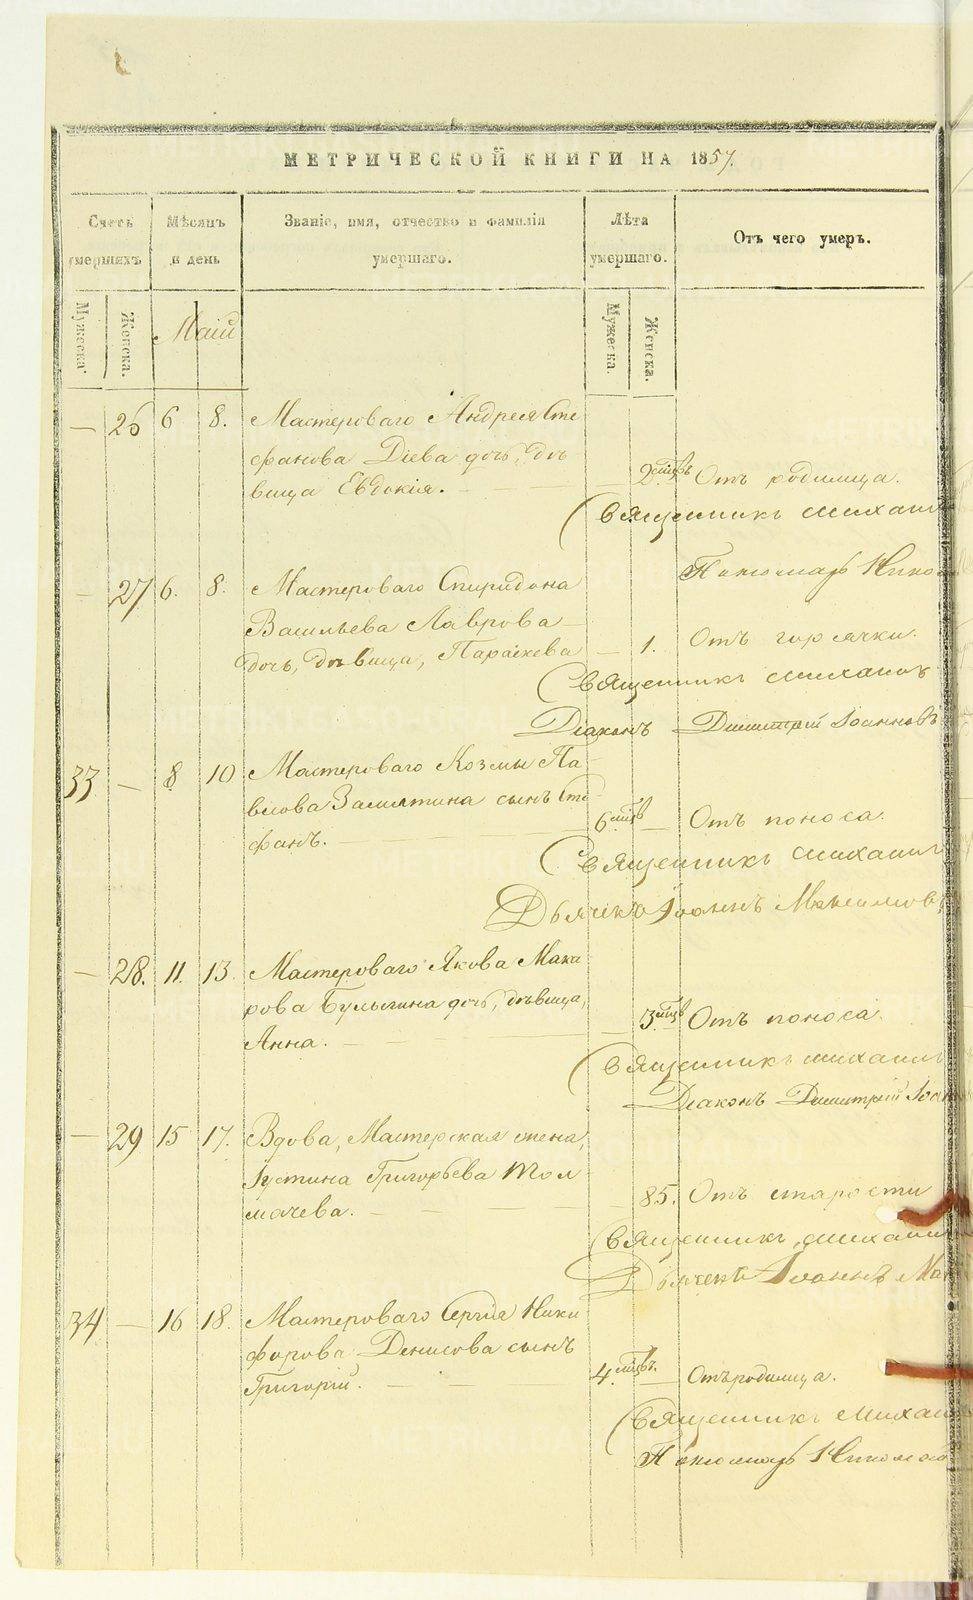 МЕТРИЧЕСКОЙ КНИГИ НА 1857.
Счетъ умершихъ
Мѣсяцъ и день
Званіе, имя, отчество и фамилія умершаго.
Лѣта умершаго.
Отъ чего умеръ.
Мужеска.
Женска.
Маій
Мужеска.
Женска.
— 26 6 8. Мастероваго Андрея Сте
фанова Діева дочь, дѣ
вица Евдокія. — 2 мцѣ Отъ родимца.
Священникъ Михаил
Пономарь Никол
— 27 6. 8. Мастероваго Спиридона
Васильева Лаврова
дочь, дѣвица, Параскева — 1. Отъ горячки.
Священникъ Михаилъ
Діаконъ Димитрій Іоанновъ
33 — 8 10 Мастероваго Козмы Па
влова Замятина сынъ Сте
фанъ. — 6 мцѣ — Отъ поноса.
Священникъ Михаилъ
Дьячекъ Іоаннъ Максимовъ
— 28. 11. 13. Мастероваго Якова Мака
рова Булыгина дочь, дѣвица,
Анна. — 3 мцѣ Отъ поноса.
Священникъ Михаилъ
Діаконъ Димитрій Іоан
— 29 15 17. Вдова, Мастерская жена,
Іустина Григорьева Тол
мачева. — 85. Отъ старости
Священникъ Михаил
Дьячекъ Іоаннъ Мак
34 — 16 18. Мастероваго Сергія Ники
форова Денисова сынъ
Григорій. — 4 мцѣ. — Отъ родимца.
Священникъ Михаи
Пономарь Николай